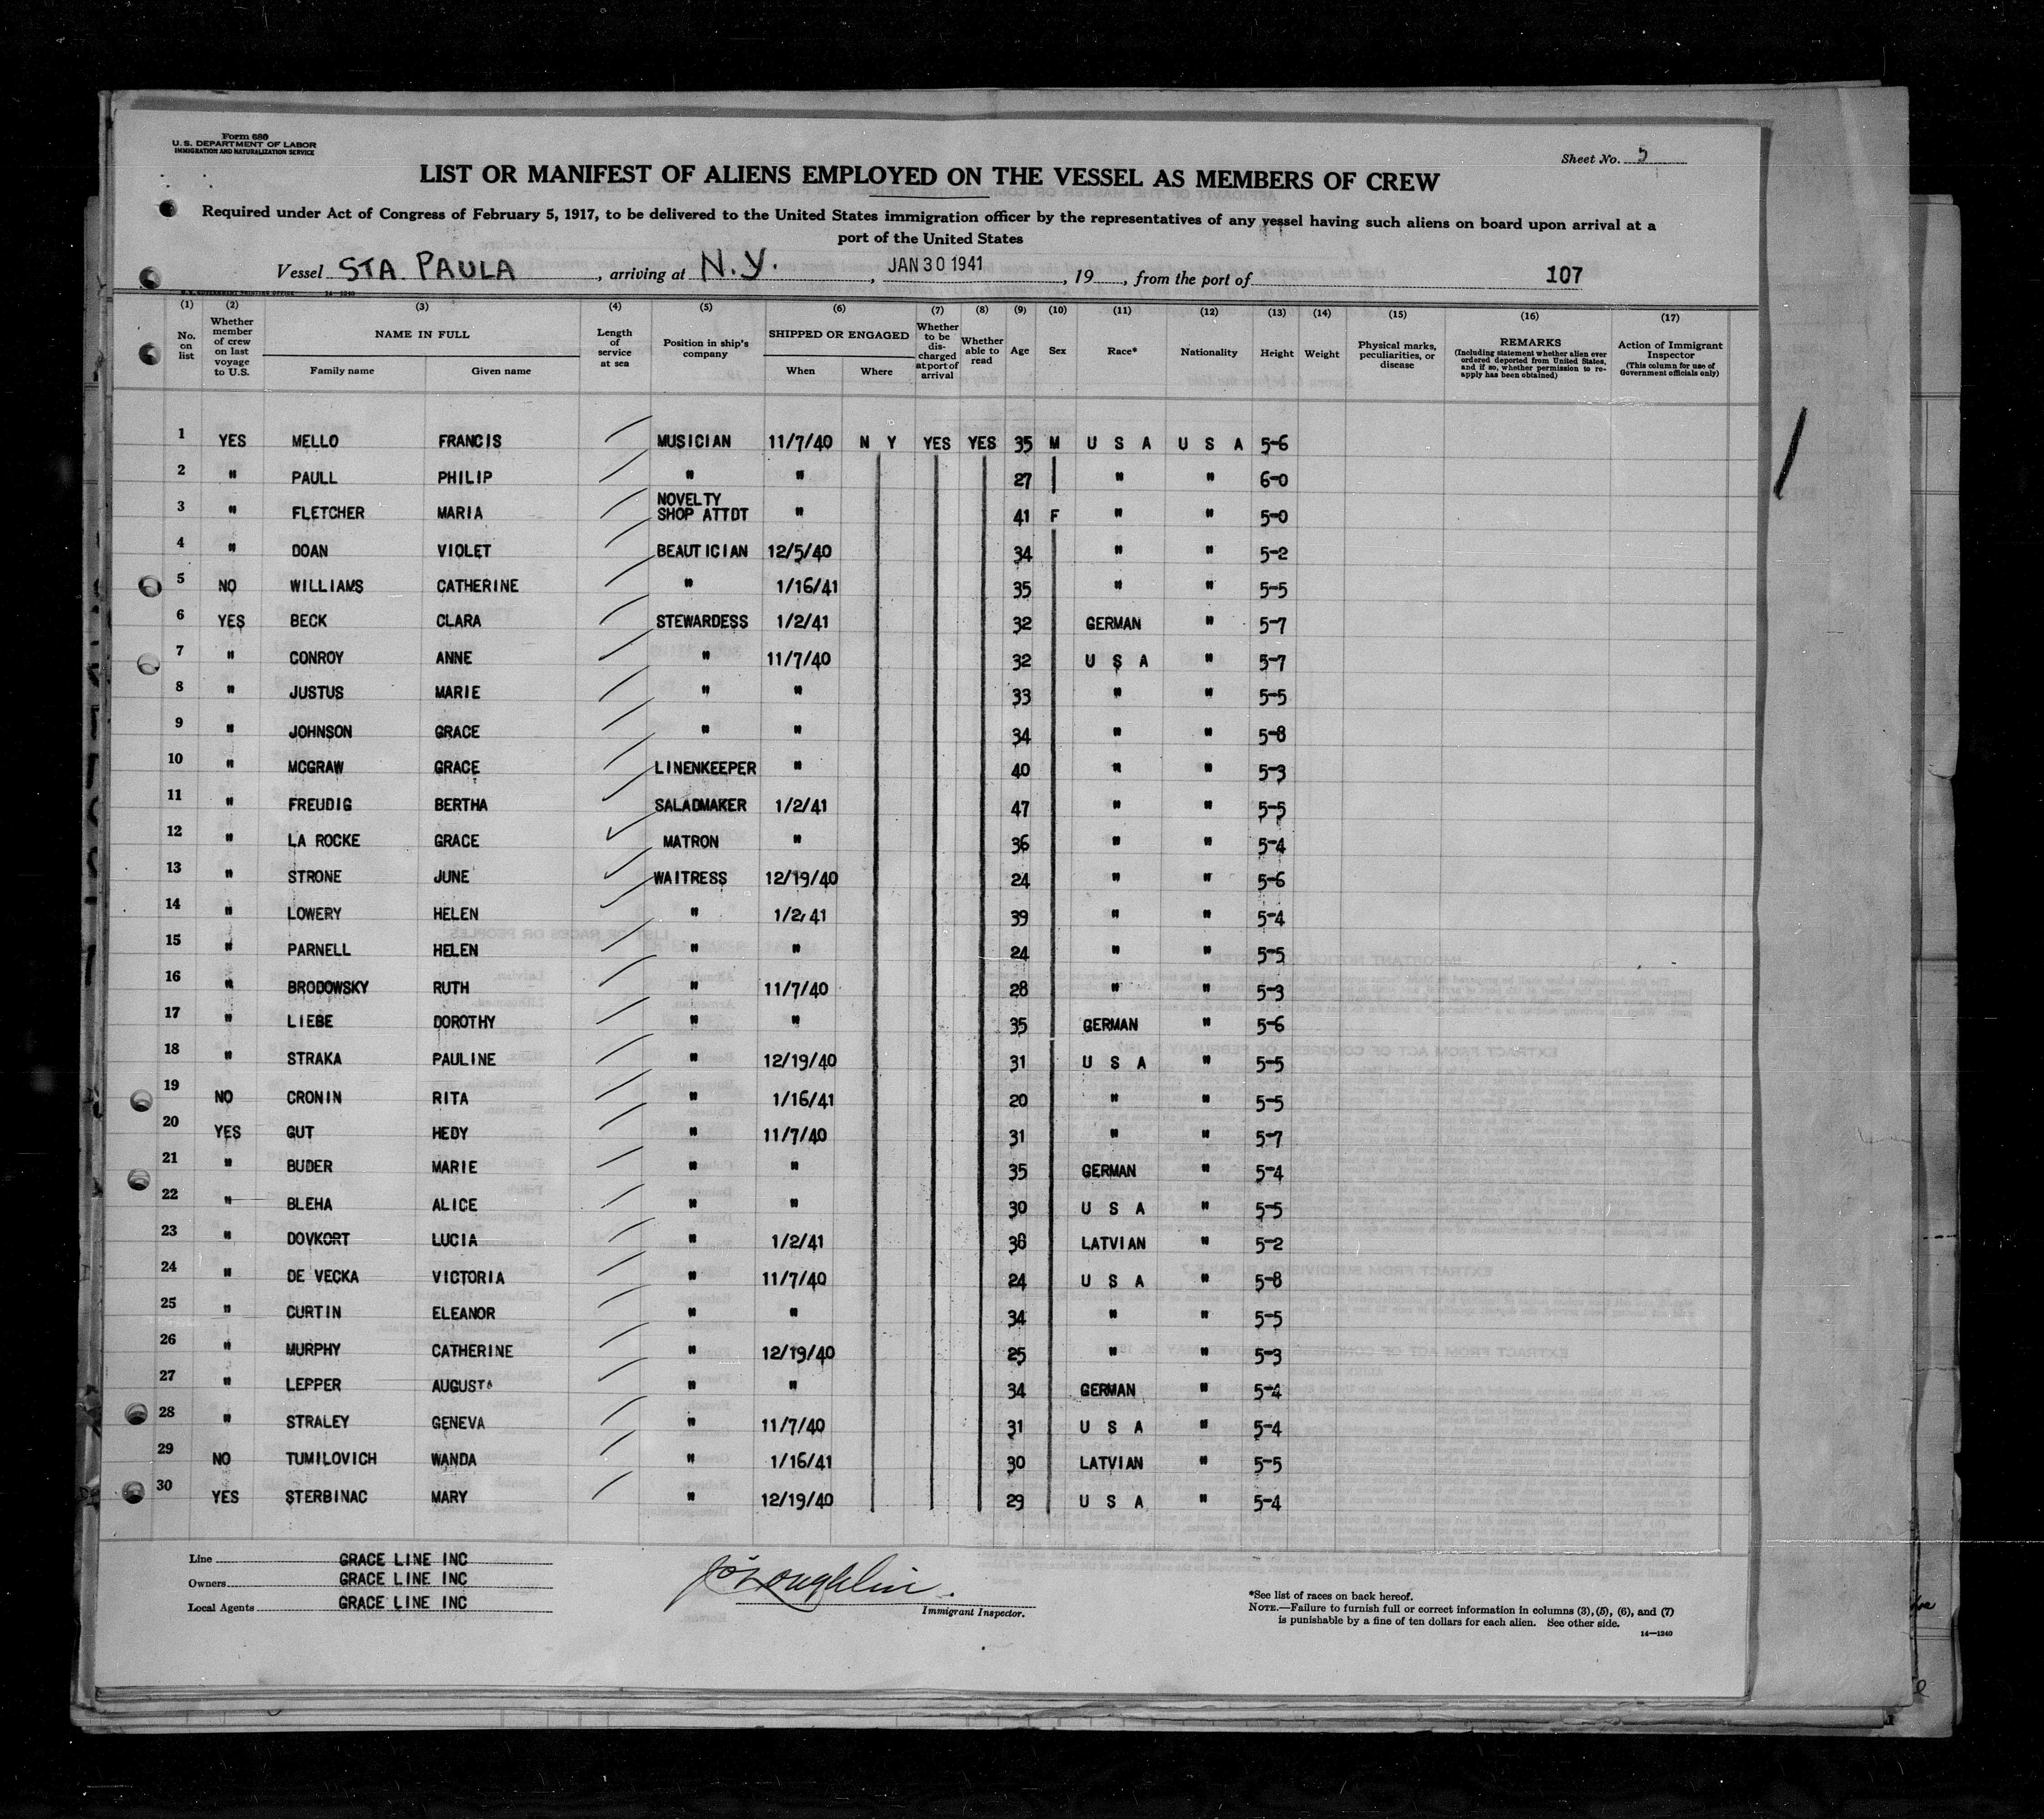 Form 680
U. S. DEPARTMENT OF LABOR
IMMIGRATION AND NATURALIZATION SERVICE
Sheet No. 5
LIST OR MANIFEST OF ALIENS EMPLOYED ON THE VESSEL AS MEMBERS OF CREW
Required under Act of Congress of February 5, 1917, to be delivered to the United States immigration officer by the representatives of any vessel having such aliens on board upon arrival at a
port of the United States
Vessel STA. PAULA, arriving at N.Y., JAN 30 1941, 19, from the port of 107
U. S. GOVERNMENT PRINTING OFFICE 14—1240
(1) (2) (3) (4) (5) (6) (7) (8) (9) (10) (11) (12) (13) (14) (15) (16) (17)
No. on list
Whether member of crew on last voyage to U.S.
NAME IN FULL
Family name Given name
Length of service at sea
Position in ship's company
SHIPPED OR ENGAGED
When Where
Whether to be discharged at port of arrival
Whether able to read
Age
Sex
Race*
Nationality
Height
Weight
Physical marks, peculiarities, or disease
REMARKS
(Including statement whether alien ever ordered deported from United States, and if so, whether permission to re-apply has been obtained)
Action of Immigrant Inspector
(This column for use of Government officials only)
1 YES MELLO FRANCIS MUSICIAN 11/7/40 N Y YES YES 35 M U S A U S A 5-6
2 " PAULL PHILIP " " 27 " " 6-0
3 " FLETCHER MARIA NOVELTY SHOP ATTDT " 41 F " " 5-0
4 " DOAN VIOLET BEAUTICIAN 12/5/40 34 " " 5-2
5 NO WILLIAMS CATHERINE " 1/16/41 35 " " 5-5
6 YES BECK CLARA STEWARDESS 1/2/41 32 GERMAN " 5-7
7 " CONROY ANNE " 11/7/40 32 U S A " 5-7
8 " JUSTUS MARIE " " 33 " " 5-5
9 " JOHNSON GRACE " " 34 " " 5-8
10 " MCGRAW GRACE LINENKEEPER " 40 " " 5-3
11 " FREUDIG BERTHA SALADMAKER 1/2/41 47 " " 5-5
12 " LA ROCKE GRACE MATRON " 36 " " 5-4
13 " STRONE JUNE WAITRESS 12/19/40 24 " " 5-6
14 " LOWERY HELEN " 1/2/41 39 " " 5-4
15 " PARNELL HELEN " " 24 " " 5-5
16 " BRODOWSKY RUTH " 11/7/40 28 " " 5-3
17 " LIEBE DOROTHY " " 35 GERMAN " 5-6
18 " STRAKA PAULINE " 12/19/40 31 U S A " 5-5
19 NO CRONIN RITA " 1/16/41 20 " " 5-5
20 YES GUT HEDY " 11/7/40 31 " " 5-7
21 " BUDER MARIE " " 35 GERMAN " 5-4
22 " BLEHA ALICE " " 30 U S A " 5-5
23 " DOVKORT LUCIA " 1/2/41 38 LATVIAN " 5-2
24 " DE VECKA VICTORIA " 11/7/40 24 U S A " 5-8
25 " CURTIN ELEANOR " " 34 " " 5-5
26 " MURPHY CATHERINE " 12/19/40 25 " " 5-3
27 " LEPPER AUGUSTA " " 34 GERMAN " 5-4
28 " STRALEY GENEVA " 11/7/40 31 U S A " 5-4
29 NO TUMILOVICH WANDA " 1/16/41 30 LATVIAN " 5-5
30 YES STERBINAC MARY " 12/19/40 29 U S A " 5-4
Line GRACE LINE INC
Owners GRACE LINE INC
Local Agents GRACE LINE INC
J O'Loughlin.
Immigrant Inspector.
*See list of races on back hereof.
NOTE.—Failure to furnish full or correct information in columns (3), (5), (6), and (7)
is punishable by a fine of ten dollars for each alien. See other side.
14—1240